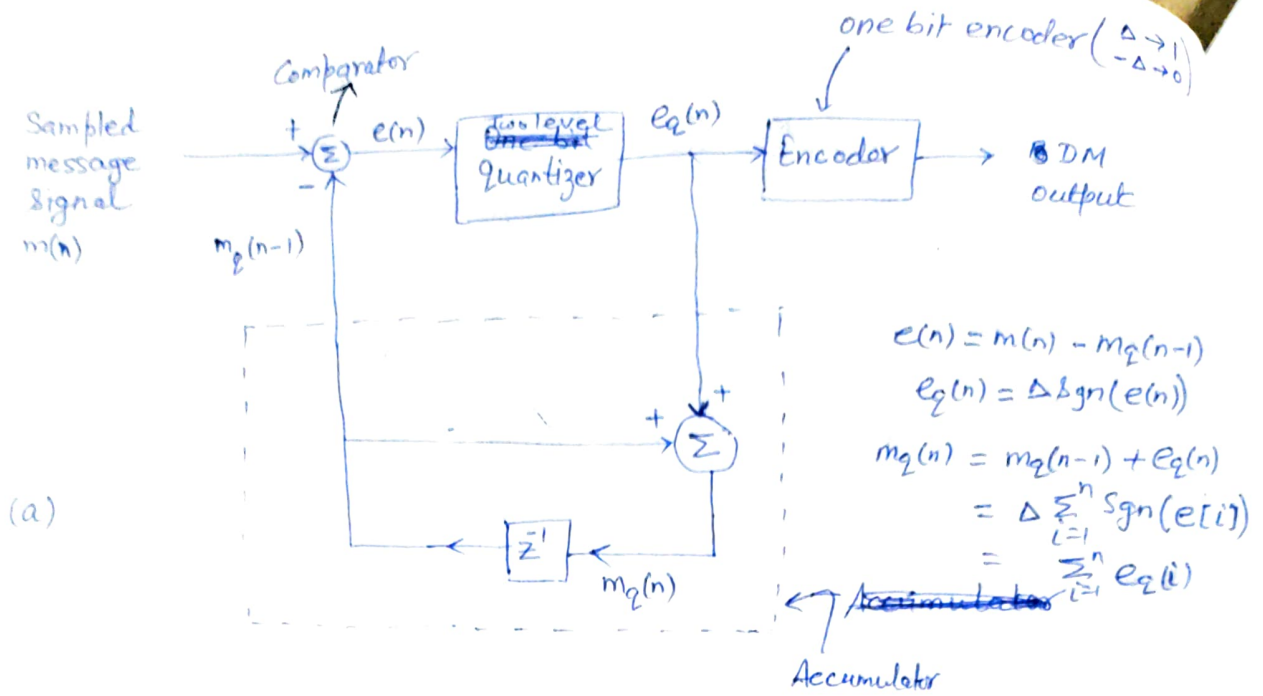 one bit encoder ( Δ → 1
-Δ → 0 )
Comparator
Sampled
message
signal
m(n)
+
Σ
-
e(n)
two level
Quantizer
eq(n)
Encoder
DM
output
mq(n-1)
e(n) = m(n) - mq(n-1)
eq(n) = Δ sgn(e(n))
mq(n) = mq(n-1) + eq(n)
= Δ Σ_{i=1}^{n} sgn(e[i])
= Σ_{i=1}^{n} eq(i)
+
+
Σ
(a)
z^-1
mq(n)
Accumulator